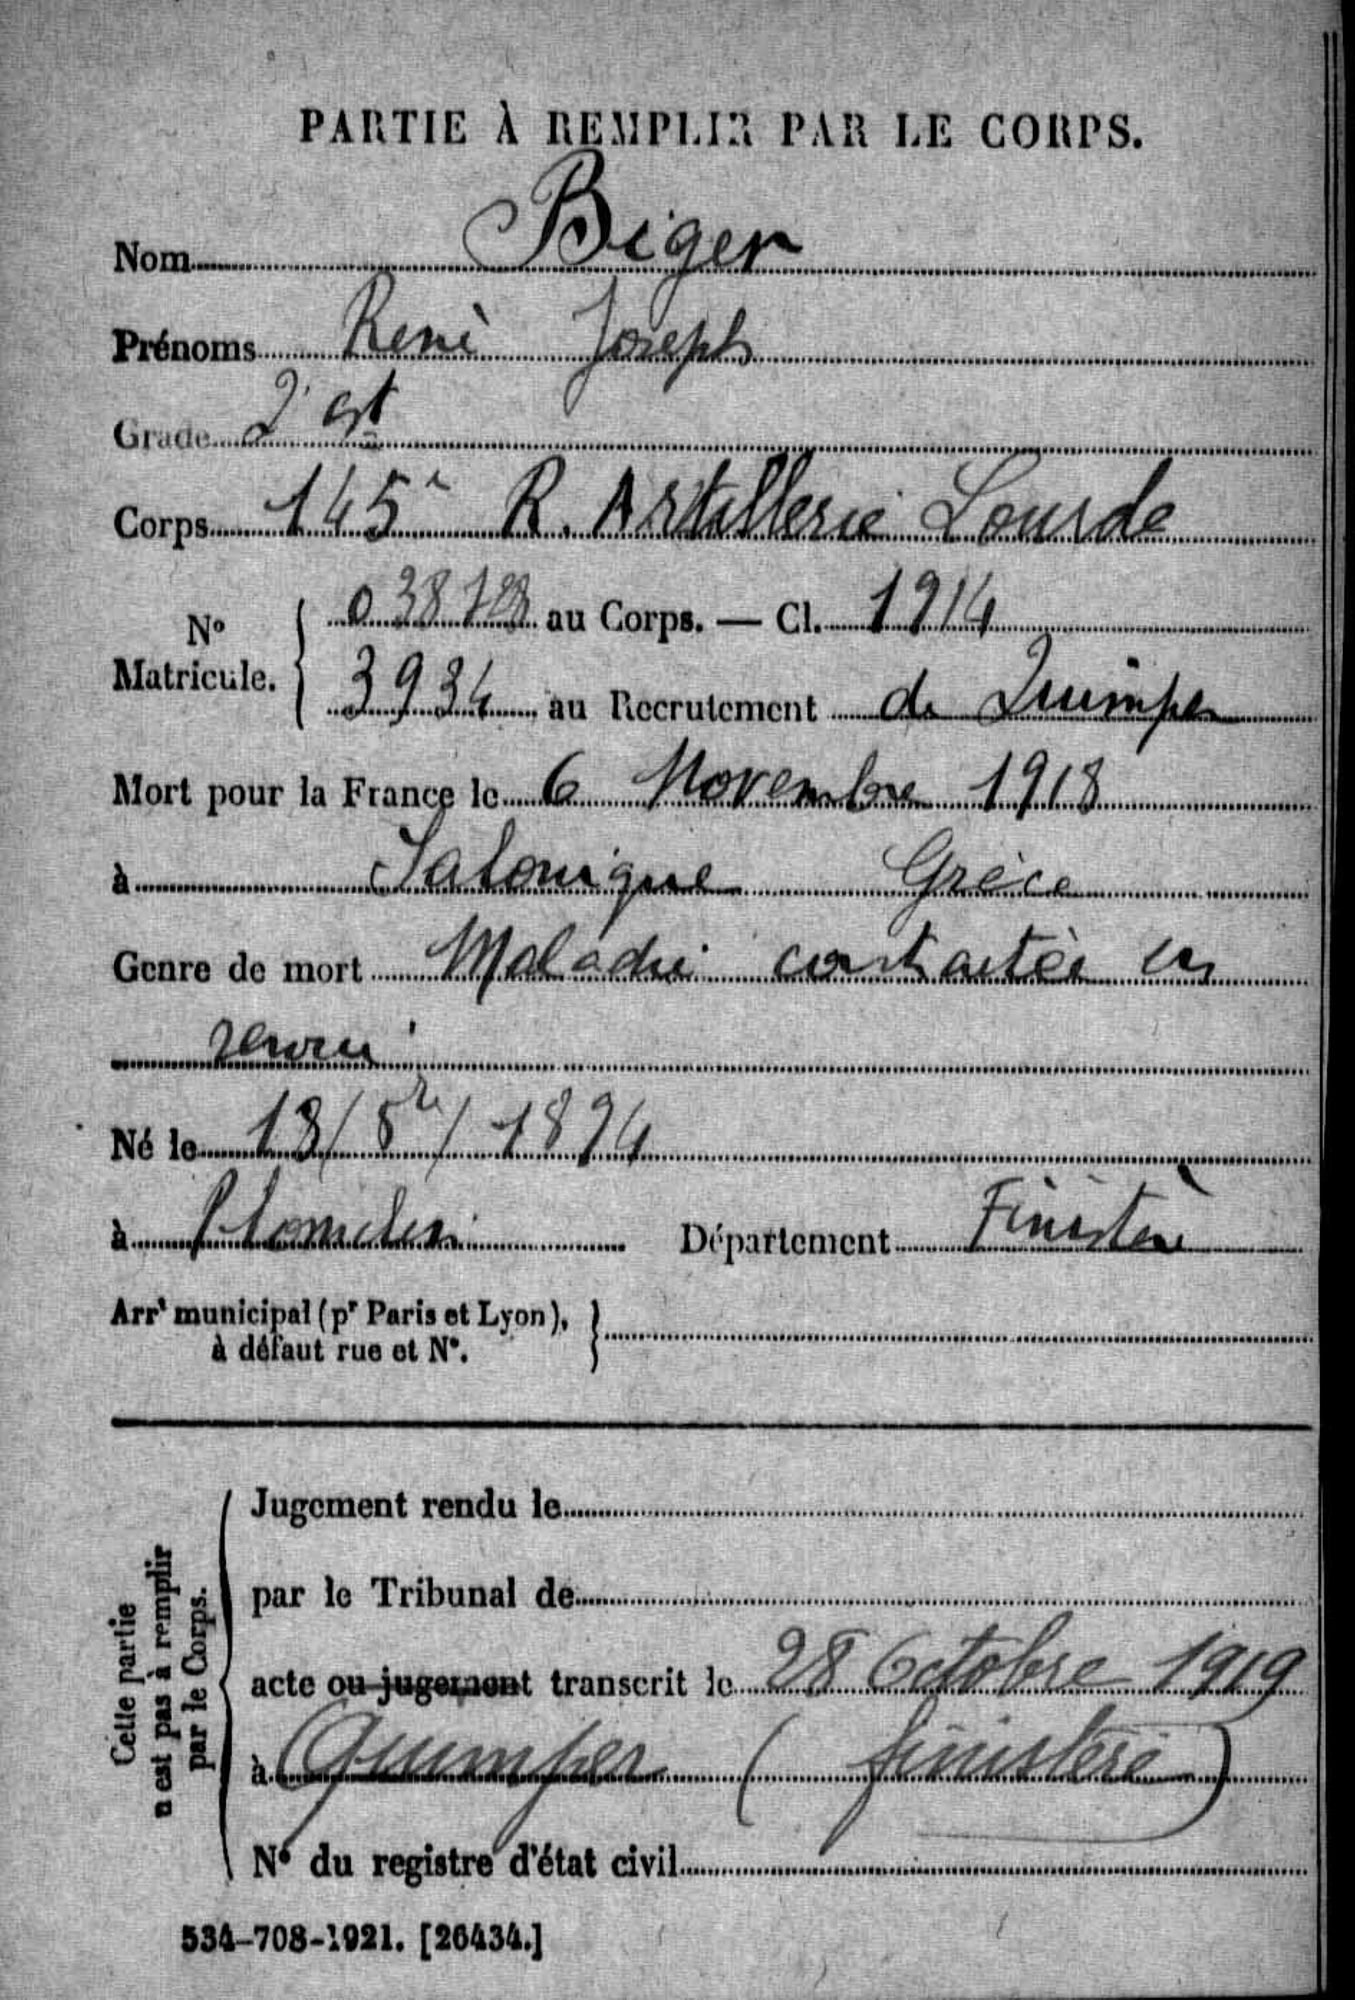 PARTIE À REMPLIR PAR LE CORPS.
Nom Biger
Prénoms René Joseph
Grade 2e
Corps 145e R. Artillerie Lourde
No Matricule. { 038728 au Corps. — Cl. 1914
3934 au Recrutement de Quimper
Mort pour la France le 6 Novembre 1918
à Salonique Grèce
Genre de mort Maladie contractée en
service
Né le 13/ 8re/ 1894
à Plomelin Département Finistère
Arrt municipal (pr Paris et Lyon), }
à défaut rue et No.
Cette partie
n'est pas à remplir
par le Corps.
Jugement rendu le
par le Tribunal de
acte ou jugement transcrit le 28 Octobre 1919
à Quimper (Finistère)
No du registre d'état civil
534-708-1921. [26434.]